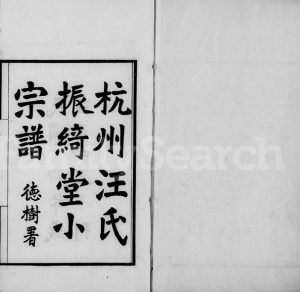 杭州汪氏
振綺堂小
宗譜
德樹署
FamilySearch